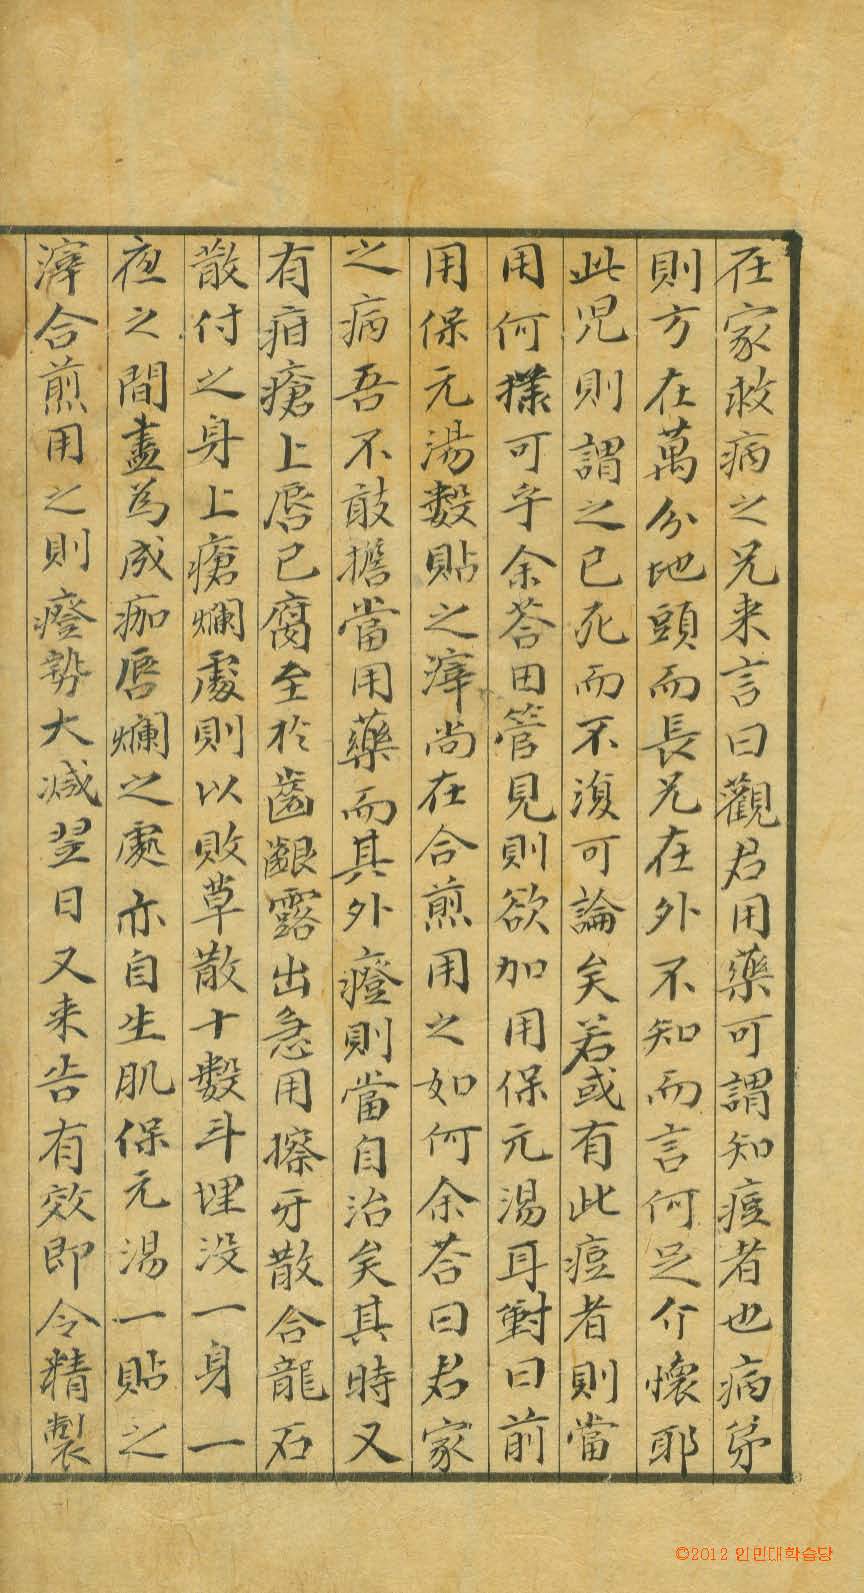 在家救病之兄来言曰觀君用藥可謂知痘者也病弟
則方在萬分地頭而長兄在外不知而言何足介懷耶
此児則謂之已死而不復可論矣若或有此痘者則當
用何樣可乎余荅曰管見則欲加用保元湯耳對曰前
用保元湯數貼之滓尚在合煎用之如何余荅曰君家
之病吾不敢擔當用藥而其外證則當自治矣其時又
有疳瘡上唇已腐至於齒齦露出急用擦牙散合龍石
散付之身上瘡爛處則以敗草散十數斗埋没一身一
夜之間盡為成痂唇爛之處亦自生肌保元湯一貼之
滓合煎用之則癥勢大减翌日又来告有效即令精製
©2012 인민대학습당